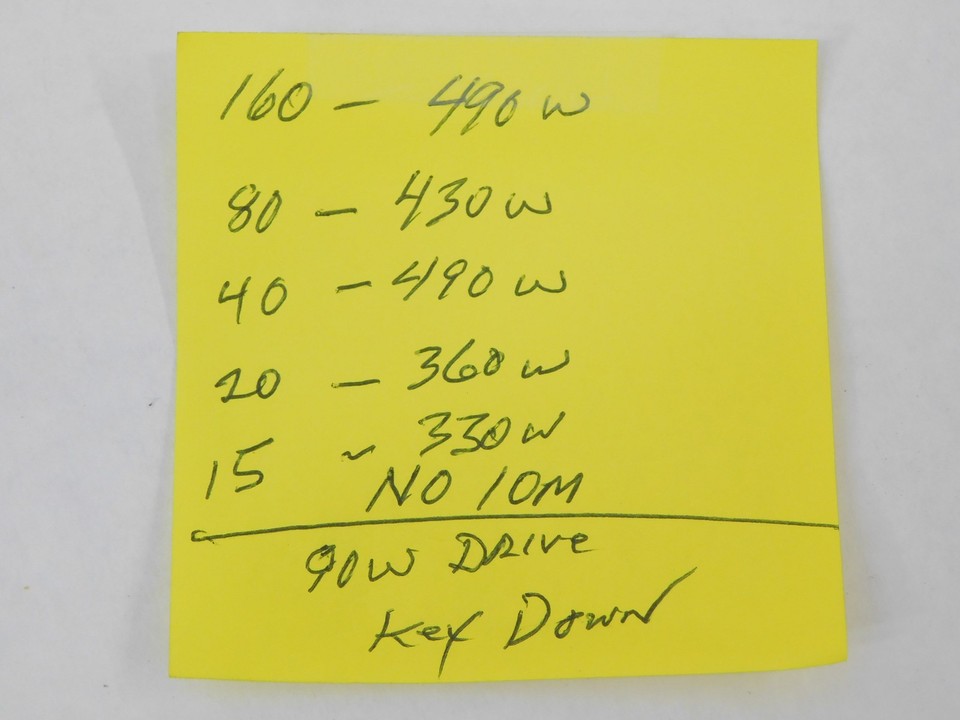 160 – 490 W
80 – 430 W
40 – 490 W
20 – 360 W
15 ~ 330 W
NO 10M
90W DRIVE
Key Down